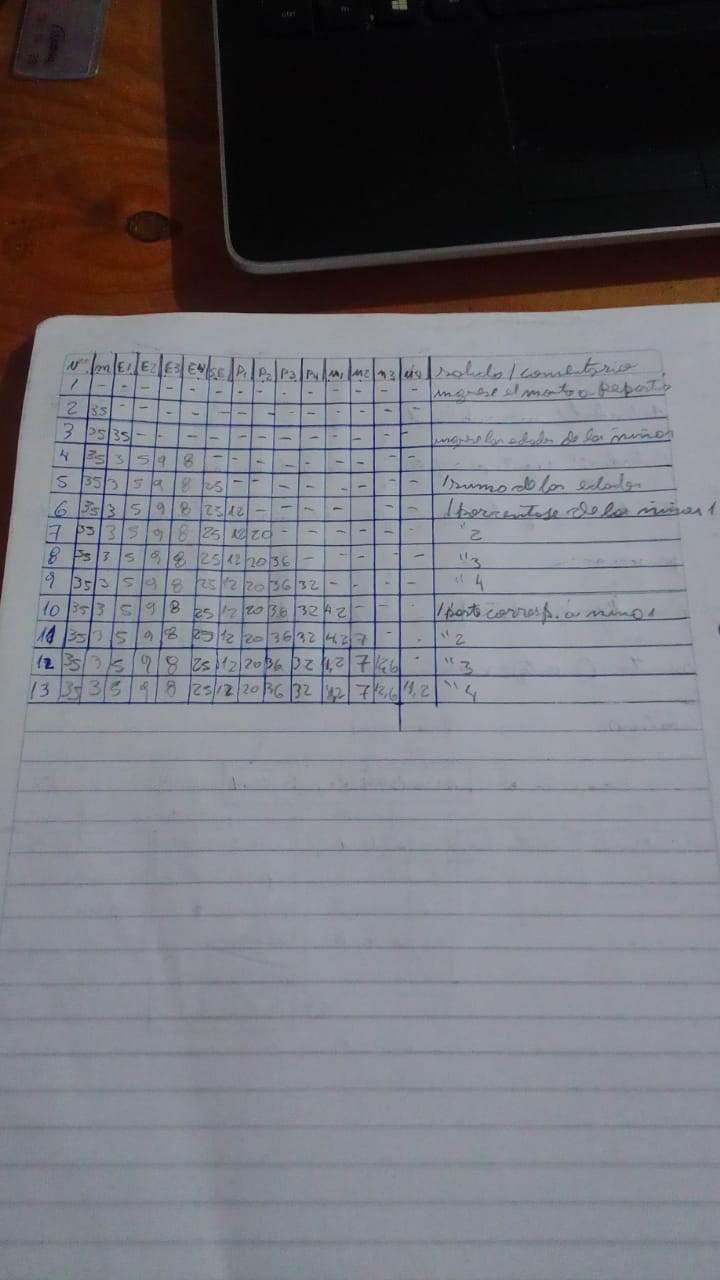 Nº m E1 E2 E3 E4 S.E P1 P2 P3 P4 M1 M2 M3 M4 salida / comentario
1 - - - - - - - - - - - - - - ingrese el monto a
2 35 - - - - - - - - - - - - -
3 35 35 - - - - - - - - - - - - ingrese las edades de los niños
4 35 3 5 9 8 - - - - - - - - -
5 35 3 5 9 8 25 - - - - - - - - /suma de las edades
6 35 3 5 9 8 25 12 - - - - - - - /porcentaje de los niños 1
7 35 3 5 9 8 25 12 20 - - - - - - "2
8 35 3 5 9 8 25 12 20 36 - - - - - "3
9 35 3 5 9 8 25 12 20 36 32 - - - - "4
10 35 3 5 9 8 25 12 20 36 32 4,2 - - - /parte corresp. a niño 1
11 35 3 5 9 8 25 12 20 36 32 4,2 7 - - "2
12 35 3 5 9 8 25 12 20 36 32 4,2 7 12,6 - "3
13 35 3 5 9 8 25 12 20 36 32 4,2 7 12,6 11,2 "4